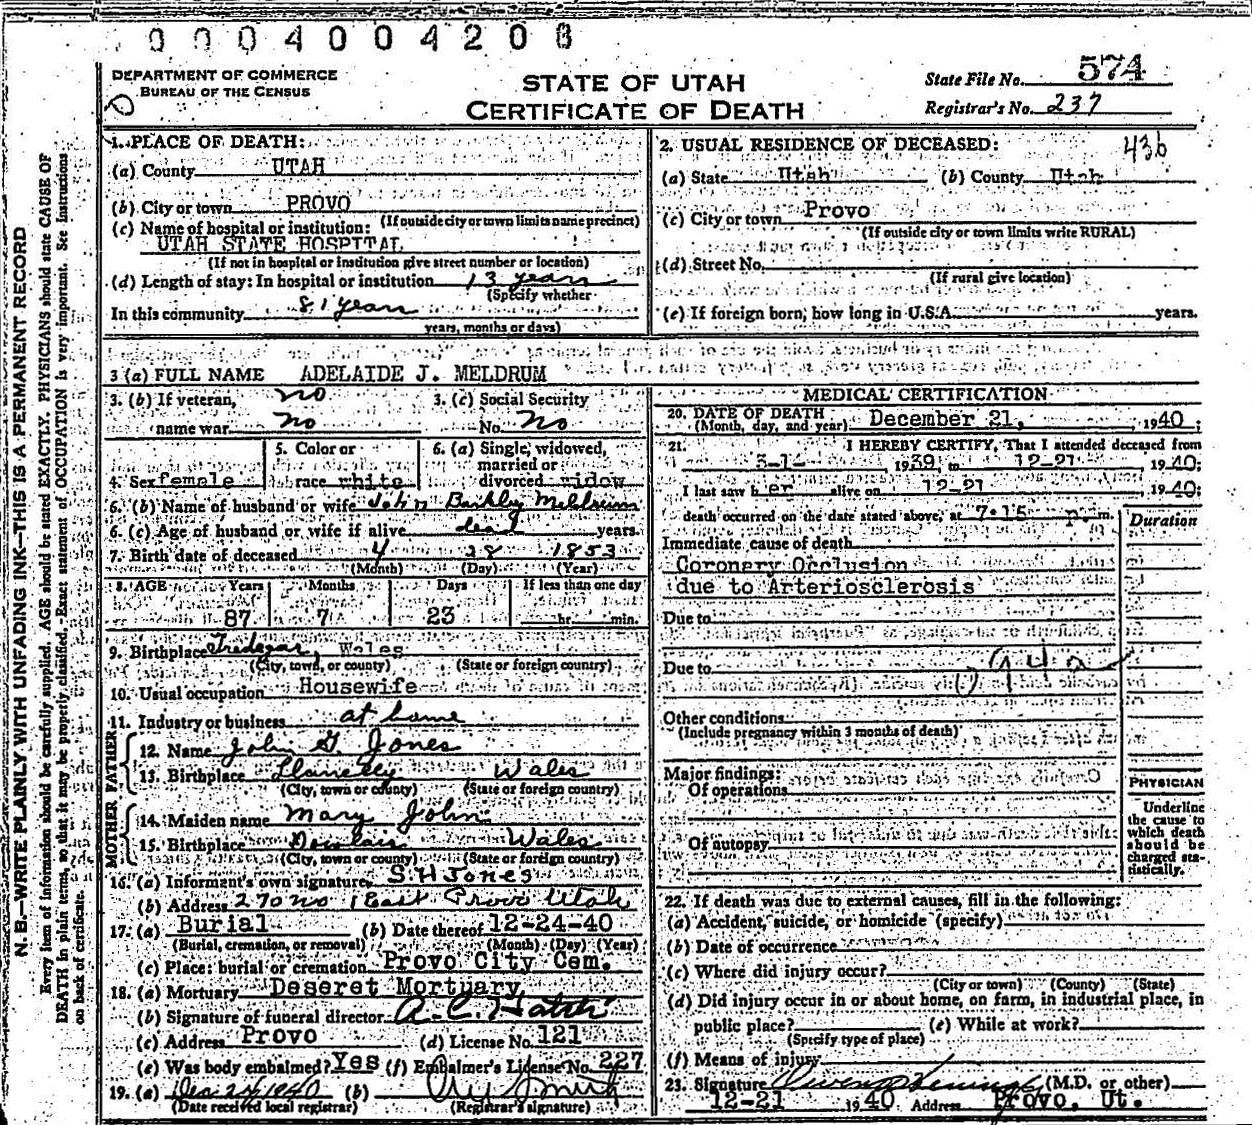 0004004208
DEPARTMENT OF COMMERCE
BUREAU OF THE CENSUS
STATE OF UTAH
CERTIFICATE OF DEATH
State File No. 574
Registrar's No. 237
N. B.—WRITE PLAINLY WITH UNFADING INK—THIS IS A PERMANENT RECORD
Every item of information should be carefully supplied. AGE should be stated EXACTLY. PHYSICIANS should state CAUSE OF
DEATH in plain terms, so that it may be properly classified. Exact statement of OCCUPATION is very important. See instructions
on back of certificate.
1. PLACE OF DEATH:
(a) County UTAH
(b) City or town PROVO
(If outside city or town limits name precinct)
(c) Name of hospital or institution:
UTAH STATE HOSPITAL
(If not in hospital or institution give street number or location)
(d) Length of stay: In hospital or institution 13 years
(Specify whether
In this community 81 years
years, months or days)
2. USUAL RESIDENCE OF DECEASED: 43b
(a) State Utah (b) County Utah
(c) City or town Provo
(If outside city or town limits write RURAL)
(d) Street No.
(If rural give location)
(e) If foreign born, how long in U.S.A. years.
3 (a) FULL NAME ADELAIDE J. MELDRUM
3. (b) If veteran, no
name war no
3. (c) Social Security
No. No
4. Sex female
5. Color or
race white
6. (a) Single, widowed,
married or
divorced widow
6. (b) Name of husband or wife John Meldrum
6. (c) Age of husband or wife if alive dead years.
7. Birth date of deceased 4 28 1853
(Month) (Day) (Year)
8. AGE Years Months Days If less than one day
87 7 23 hr. min.
9. Birthplace Tredegar, Wales
(City, town, or county) (State or foreign country)
10. Usual occupation Housewife
11. Industry or business at home
FATHER
12. Name John G. Jones
13. Birthplace Llanelly Wales
(City, town or county) (State or foreign country)
MOTHER
14. Maiden name Mary John
15. Birthplace Dowlais Wales
(City, town or county) (State or foreign country)
16. (a) Informant's own signature S. H Jones
(b) Address 270 no 1 East Provo Utah
17. (a) Burial (b) Date thereof 12-24-40
(Burial, cremation, or removal) (Month) (Day) (Year)
(c) Place: burial or cremation Provo City Cem.
18. (a) Mortuary Deseret Mortuary
(b) Signature of funeral director A. C. Hatch
(c) Address Provo (d) License No. 121
(e) Was body embalmed? Yes (f) Embalmer's License No. 227
19. (a) Dec 24 1940 (b)
(Date received local registrar) (Registrar's signature)
MEDICAL CERTIFICATION
20. DATE OF DEATH
(Month, day, and year) December 21, 1940;
21. I HEREBY CERTIFY, That I attended deceased from
3-1- 1939, to 12-21 1940;
I last saw her alive on 12-21 1940;
death occurred on the date stated above, at 7:15 p. m.
Duration
Immediate cause of death
Coronary Occlusion
due to Arteriosclerosis
Due to
Due to 94a
Other conditions
(Include pregnancy within 3 months of death)
Major findings:
Of operations
Of autopsy
PHYSICIAN
Underline
the cause to
which death
should be
charged sta-
tistically.
22. If death was due to external causes, fill in the following:
(a) Accident, suicide, or homicide (specify)
(b) Date of occurrence
(c) Where did injury occur?
(City or town) (County) (State)
(d) Did injury occur in or about home, on farm, in industrial place, in
public place? (e) While at work?
(Specify type of place)
(f) Means of injury
23. Signature (M.D. or other)
12-21 1940 Address Provo, Ut.